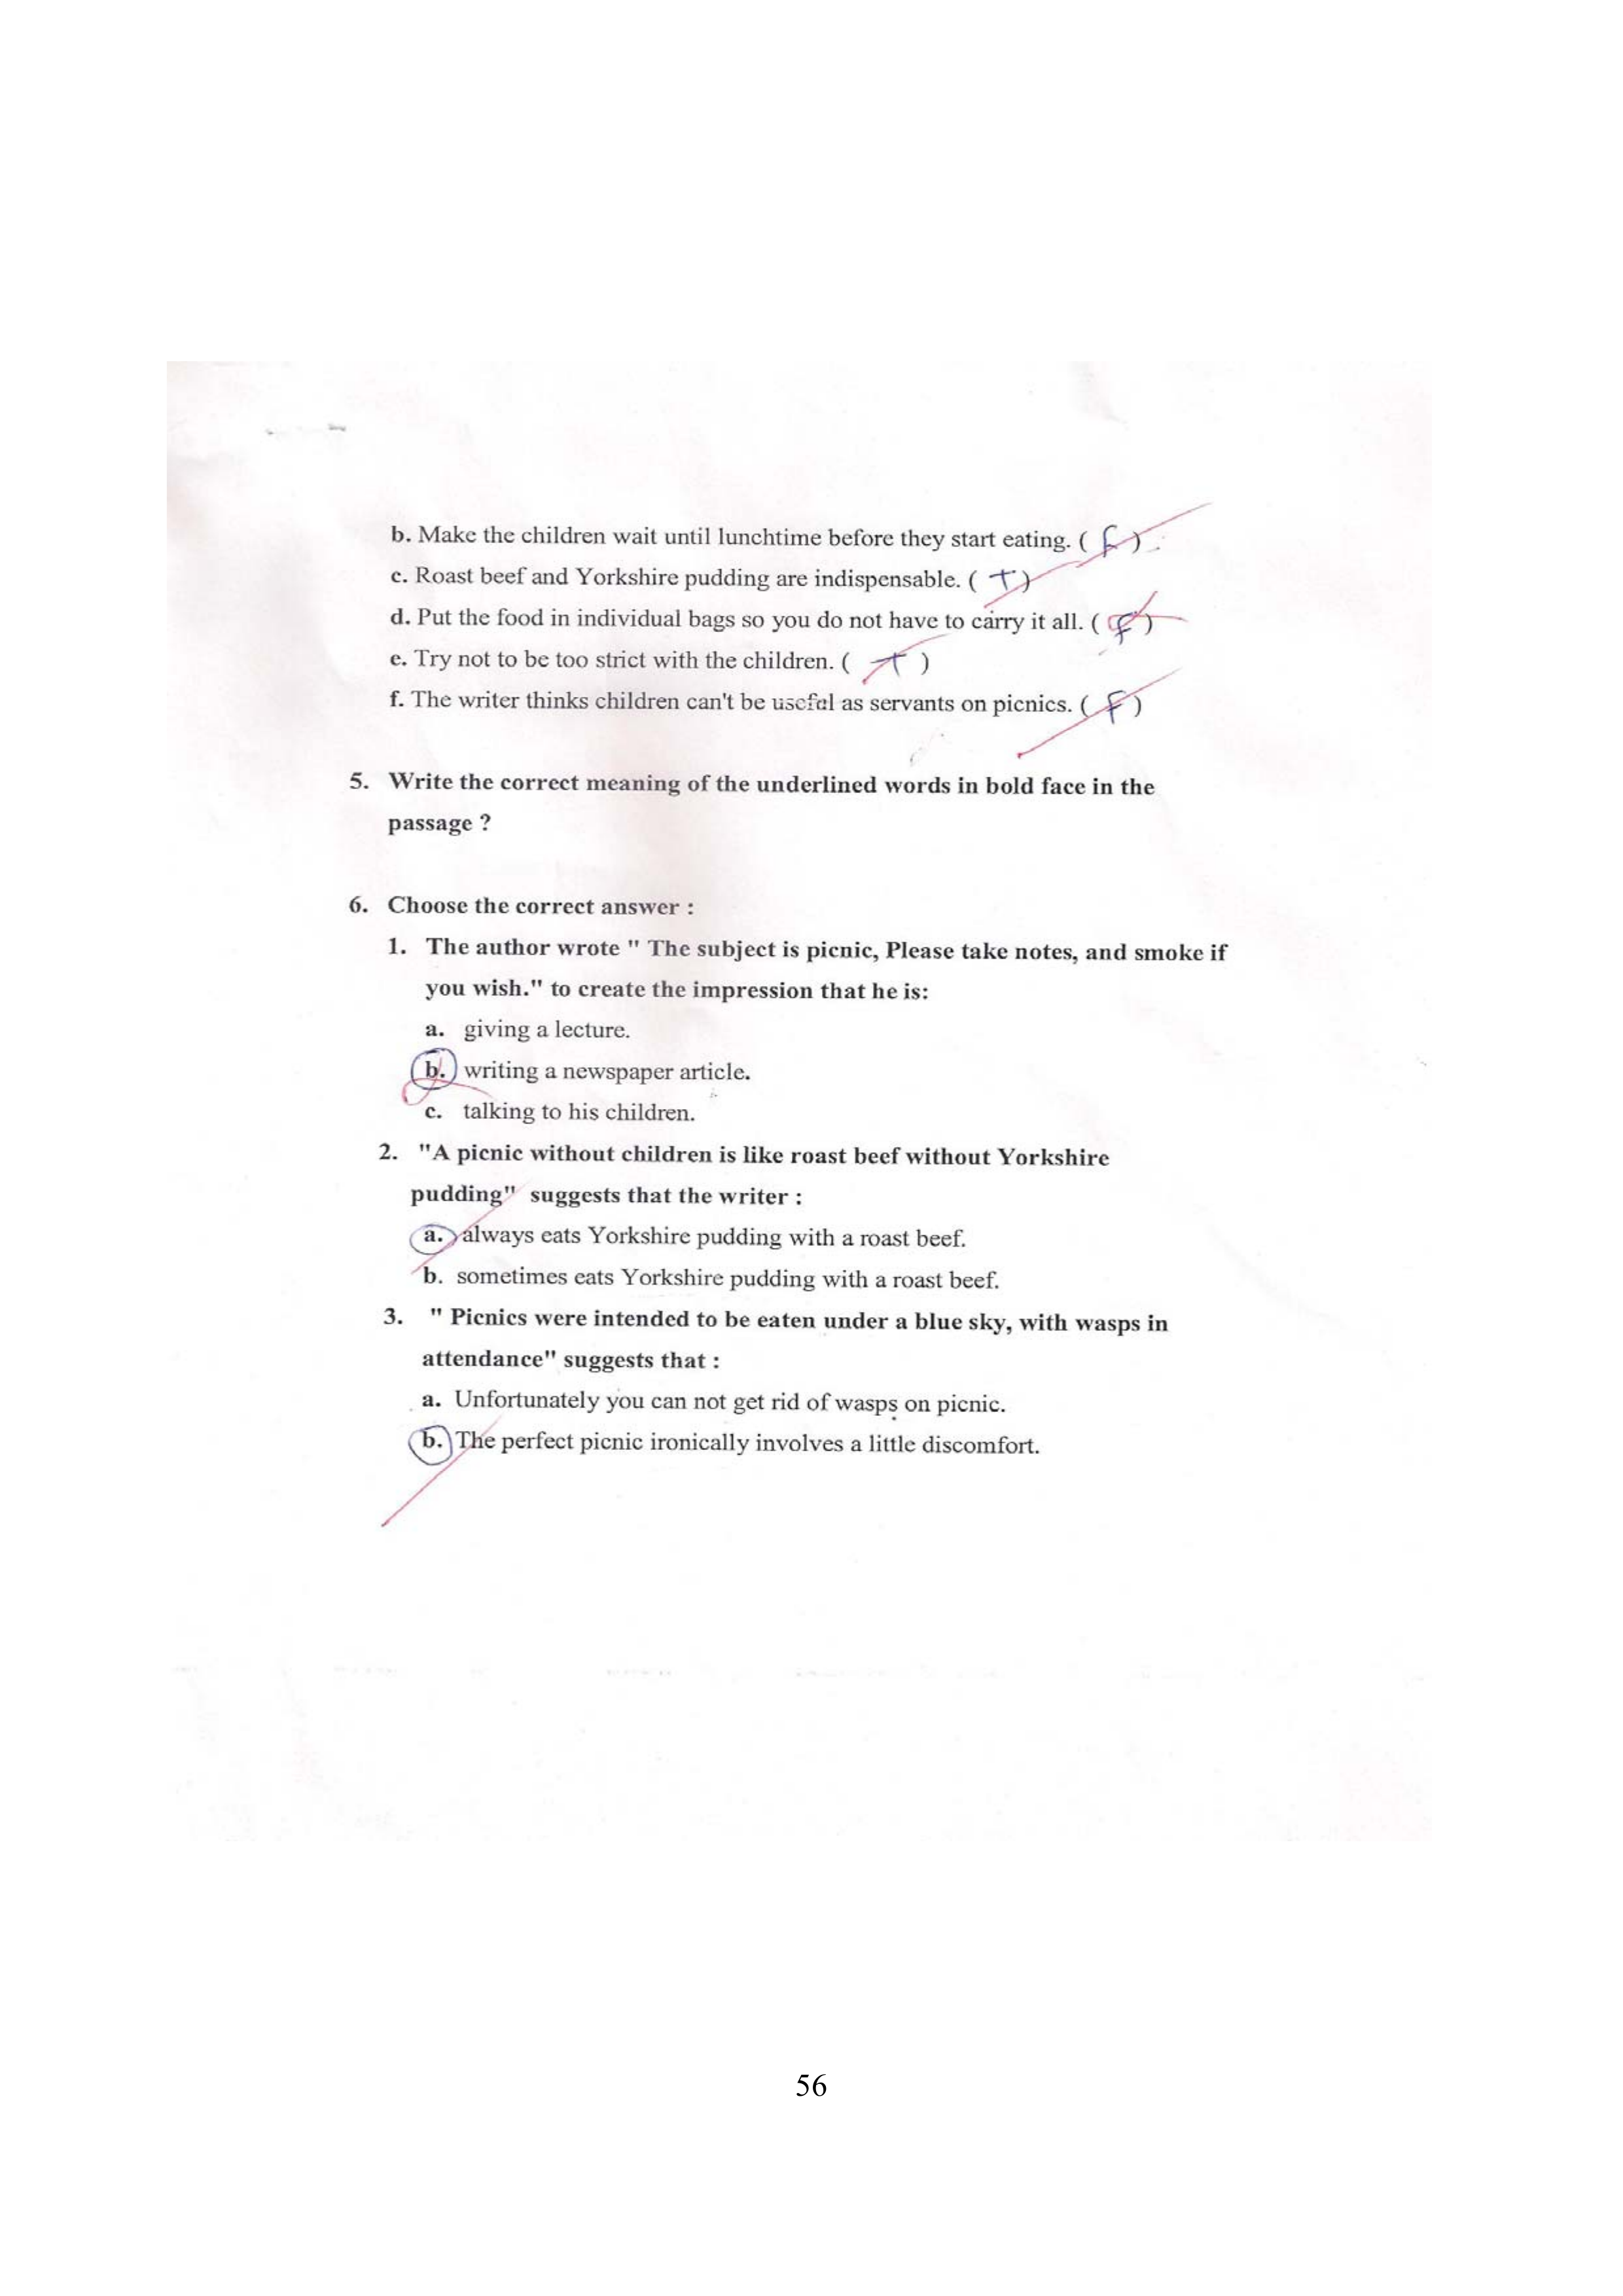 b. Make the children wait until lunchtime before they start eating. ( F )
c. Roast beef and Yorkshire pudding are indispensable. ( T )
d. Put the food in individual bags so you do not have to carry it all. ( F )
e. Try not to be too strict with the children. ( T )
f. The writer thinks children can't be useful as servants on picnics. ( F )
5. Write the correct meaning of the underlined words in bold face in the
passage ?
6. Choose the correct answer :
1. The author wrote " The subject is picnic, Please take notes, and smoke if
you wish." to create the impression that he is:
a. giving a lecture.
b. writing a newspaper article.
c. talking to his children.
2. "A picnic without children is like roast beef without Yorkshire
pudding" suggests that the writer :
a. always eats Yorkshire pudding with a roast beef.
b. sometimes eats Yorkshire pudding with a roast beef.
3. " Picnics were intended to be eaten under a blue sky, with wasps in
attendance" suggests that :
a. Unfortunately you can not get rid of wasps on picnic.
b. The perfect picnic ironically involves a little discomfort.
56